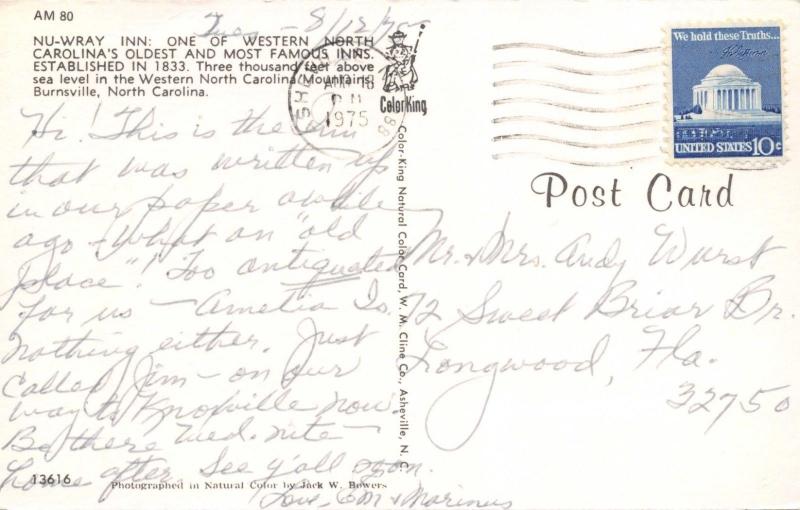 AM 80
Tues - 8/12/75
NU-WRAY INN: ONE OF WESTERN NORTH
CAROLINA'S OLDEST AND MOST FAMOUS INNS.
ESTABLISHED IN 1833. Three thousand feet above
sea level in the Western North Carolina Mountains.
Burnsville, North Carolina.
Hi! This is the inn
that was written up
in our paper awhile
ago - What an "old
place"! Too antiquated
for us - Amelia Is.
nothing either. Just
called Jim - on our
way to Knoxville now.
Be there Wed. nite -
home after. See y'all soon.
Love - Em & Marinus
13616
Photographed in Natural Color by Jack W. Bowers
PM
1975
ColorKing
Color-King Natural Color Card, W. M. Cline Co., Asheville, N. C.
We hold these Truths...
UNITED STATES 10c
Post Card
Mr. & Mrs. Andy Wurst
72 Sweet Briar Br.
Longwood, Fla.
32750